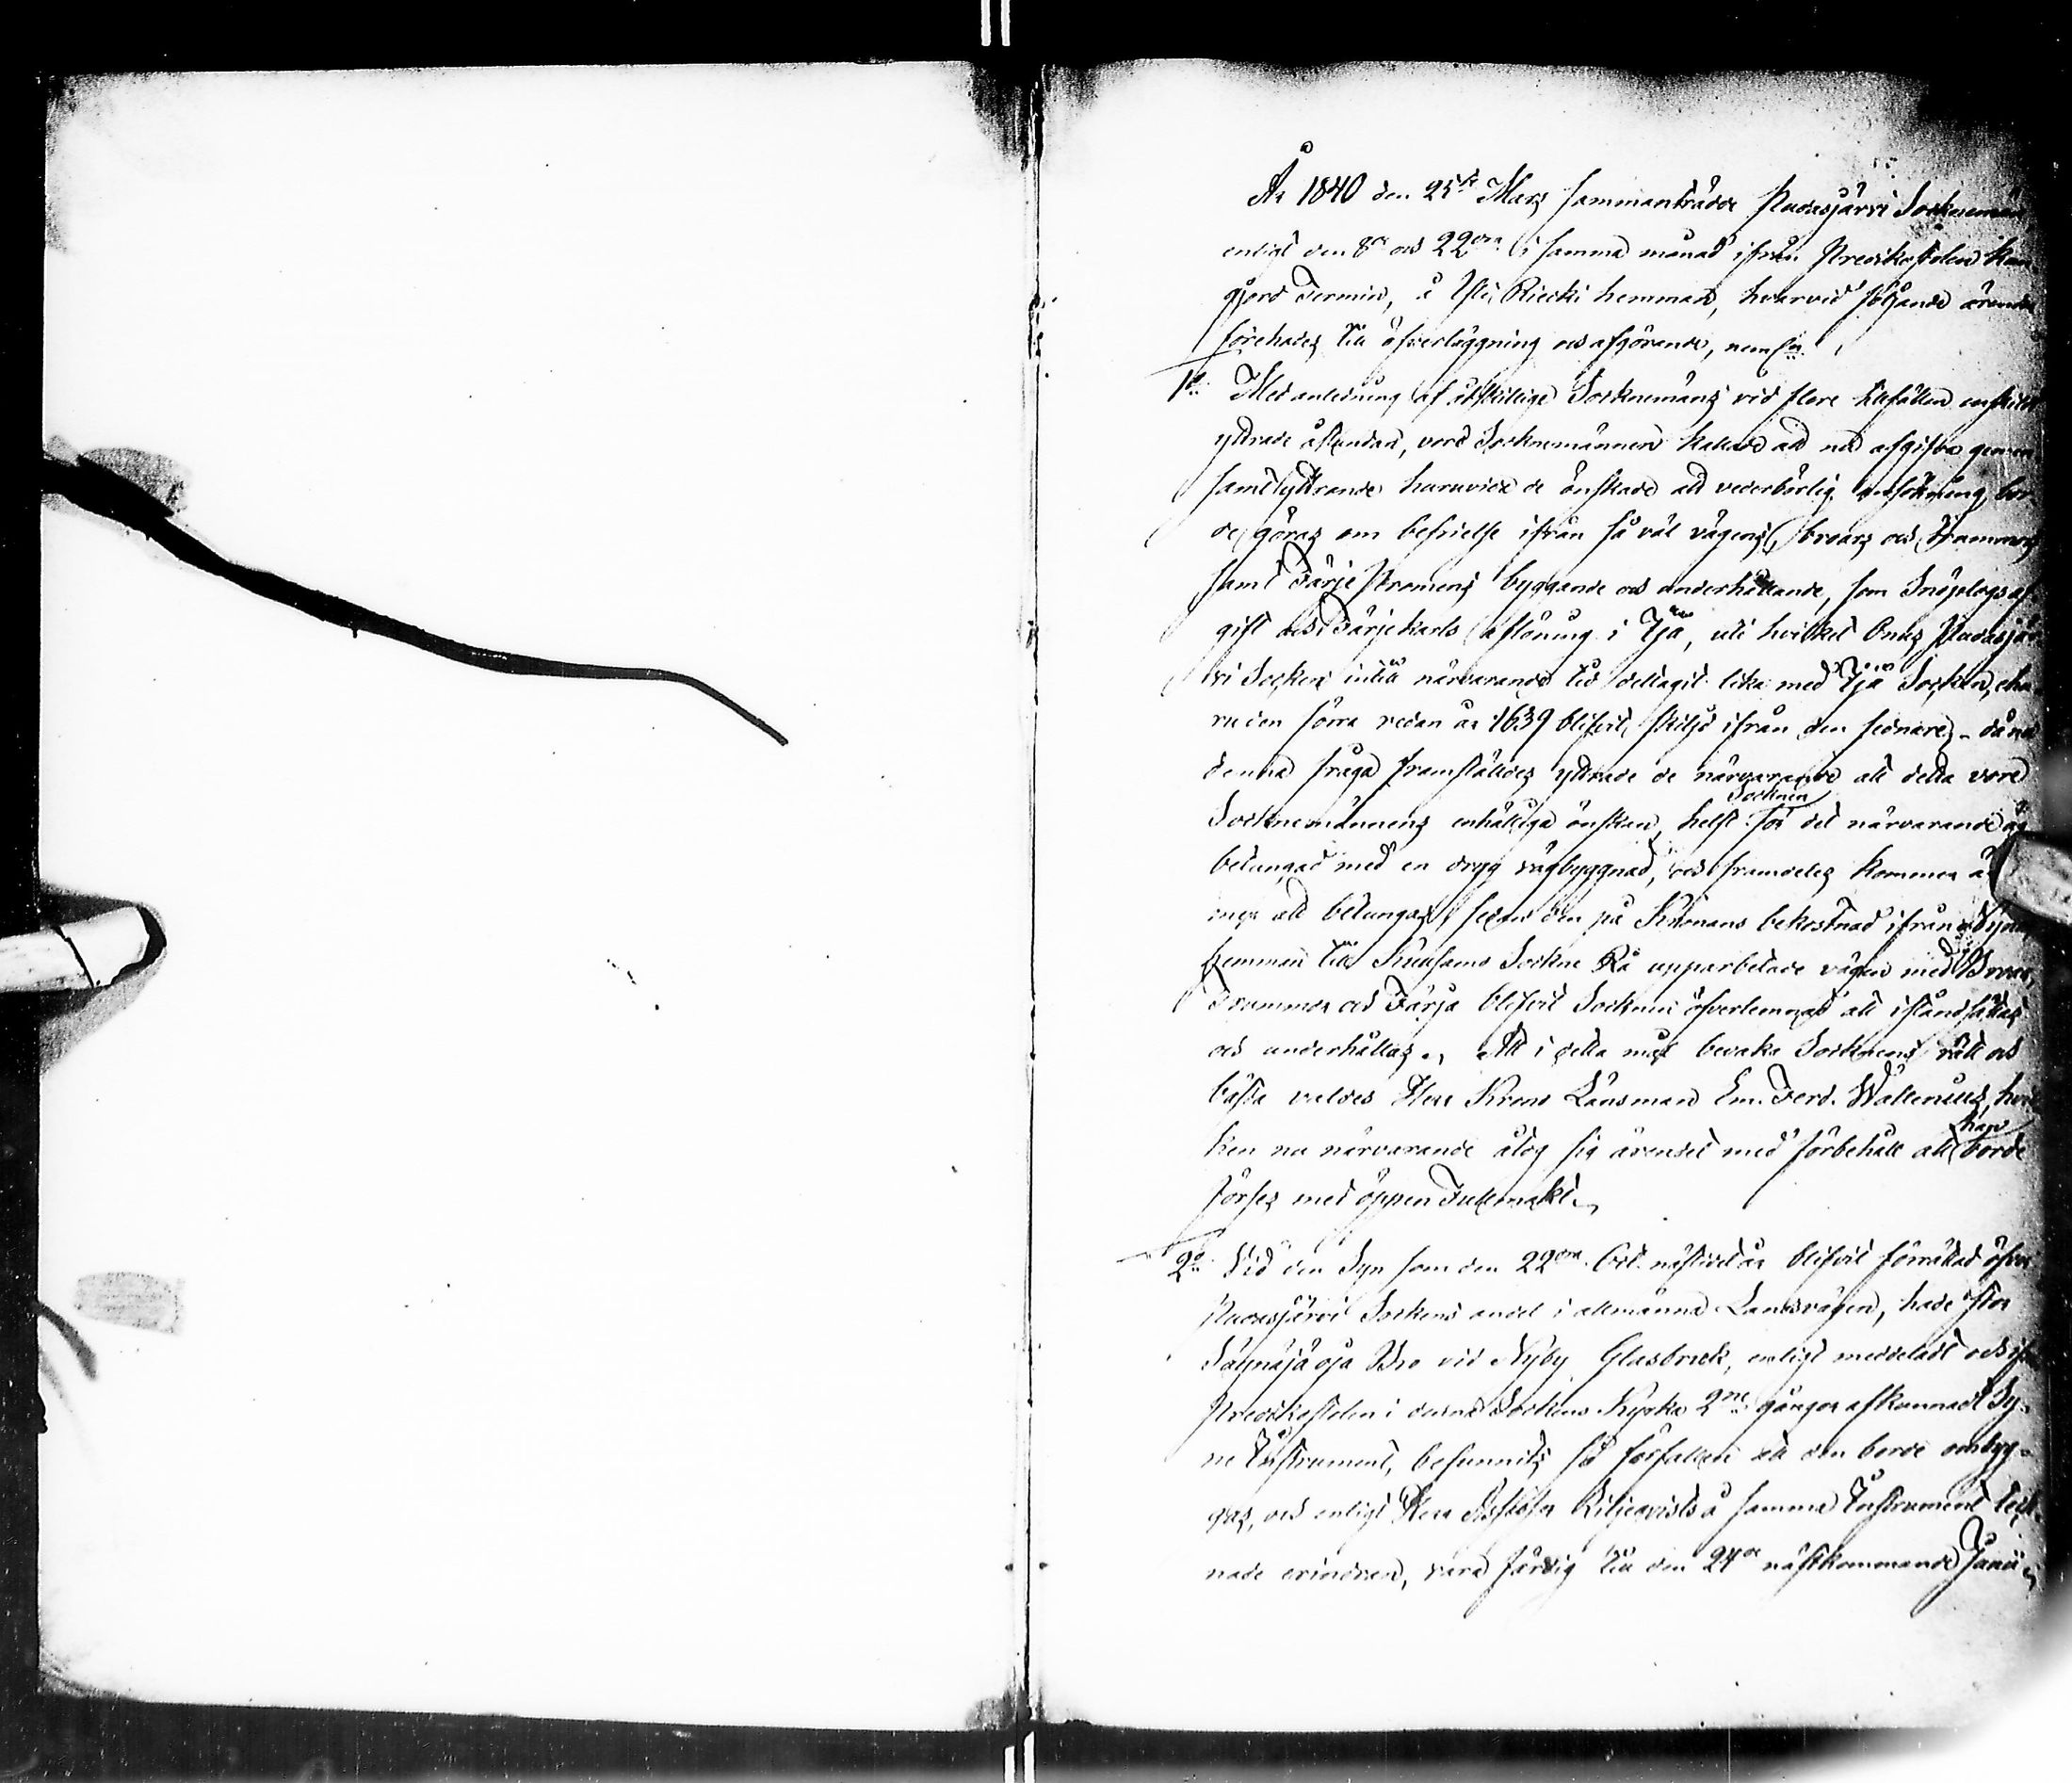 År 1840 den 25te Mars sammanträdde Pudasjärvi Socknemän
enligt den 8de och 22dra i samma månad ifrån Predikostolen kun-
gjord Termin, å Yli Riecki hemman, hvarvid följande ärender
förehades till öfverläggning och afgörande, neml:n
1o Med anledning af åtskillige Sockmemäns vid flere tillfällen enskildt
yttrade åstundan, vore Sockmemännen kallade att nu afgifva gemen-
samt yttrande huruvida de önskade att vederbörlig ansökning bor-
de göras om befrielse ifrån så väl vägens, broars och Trummors
samt Färje Prommens byggande och underhållande, som Snöplogs af-
gift och Färjekarls aflöning i Ijå, uti hvilket Onus Pudasjär-
vi Socken intill närvarande tid deltagit lika med Ijå Socken, eha-
ru den förra redan år 1639 blifvit skiljd ifrån den sednare. Då nu
denna fråga framställdes yttrade de närvarande att detta vore
Socknemännens enhälliga önskan, helst Socknen för det närvarande är
betungad med en dryg vägbyggnad, och framdeles kommer än
mer att betungas, sedan den på Kronans bekostnad ifrån
hemman till Kuusamo Sockne Rå upparbetade vägen med Broar,
Trummor och Färja blifvit Socknen öfverlemnad att iståndsättas
och underhållas. Att i detta mål bevaka Socknens rätt och
bästa valdes Herr Krono Länsman Em. Ferd. Wallenius, hvil-
ken nu närvarande åtog sig ärendet med förbehåll att han borde
förses med öppen Fullmakt.
2o Vid den Syn som den 22dra Oct. nästlidet år blifvit förrättad öfver
Pudasjärvi Sockens andel i allmänna Landsvägen, hade Stor
Säynäjäoja Bro vid Nyby Glasbruk, enligt meddeladt och ifrån
Predikostolen i denna Sockens Kyrka 2ne gångor afkunnadt Sy-
ne Instrument, befunnits så förfallen att den borde ombyg-
gas, och enligt Herr Assessor Liljeqvists å samma Instrument teck-
nade erindran, vara färdig till den 24de nästkommande Junii,